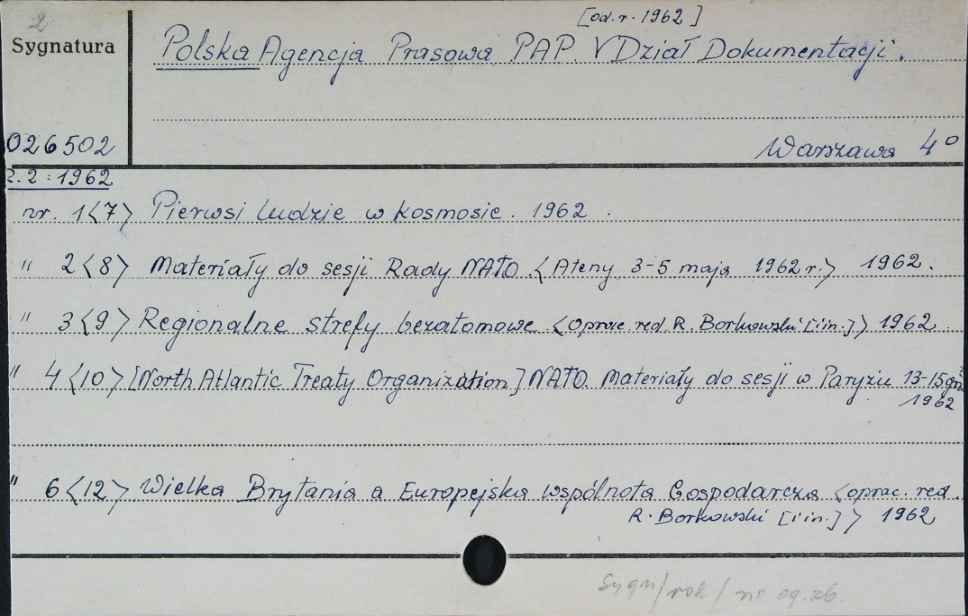 2
[od. r. 1962]
Sygnatura
Polska Agencja Prasowa PAP. V Dział Dokumentacji.
026502
Warszawa 4°
R. 2 : 1962
nr. 1<7> Pierwsi ludzie w kosmosie. 1962.
" 2<8> Materiały do sesji Rady NATO. <Ateny 3-5 maja 1962 r.> 1962.
" 3<9> Regionalne strefy bezatomowe <oprac. red. R. Borkowski [i in.]> 1962.
" 4<10> [North Atlantic Treaty Organization] NATO. Materiały do sesji w Paryżu 13-15
1962
" 6<12> Wielka Brytania a Europejska Wspólnota Gospodarcza <oprac. red.
R. Borkowski [i in.]> 1962
Sygn/rok/nr og. zb.